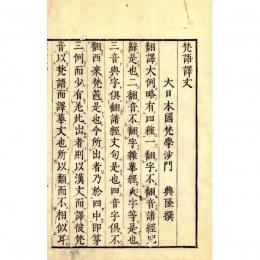 梵語譯文
大日本國梵學沙門 典隆 撰
翻譯大例略有四種一翻字不翻音諸經呪
辭是也二翻音不翻字雜華經卍字等是也
三音與字俱翻諸經文句是也四音字俱不
翻西來梵篋是也今所出者乃於四中即第
三例而少有差此出者則以漢文而譯彼梵
音以梵語而譯華文也所以類而不相似耳